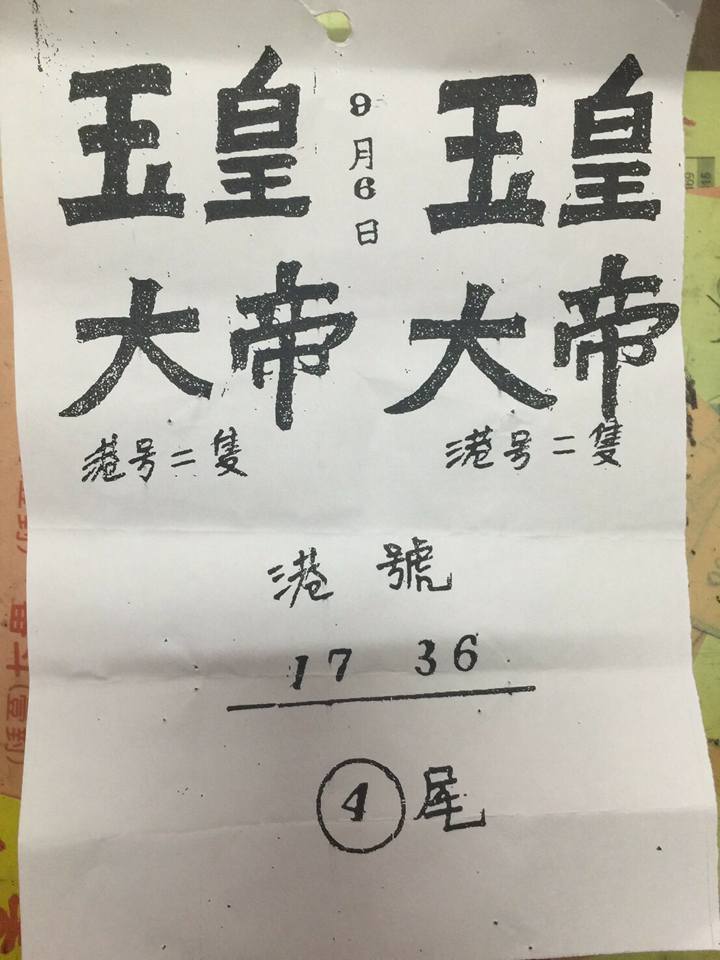 玉皇
大帝
港号二隻
9月6日
玉皇
大帝
港号二隻
港號
17 36
4尾